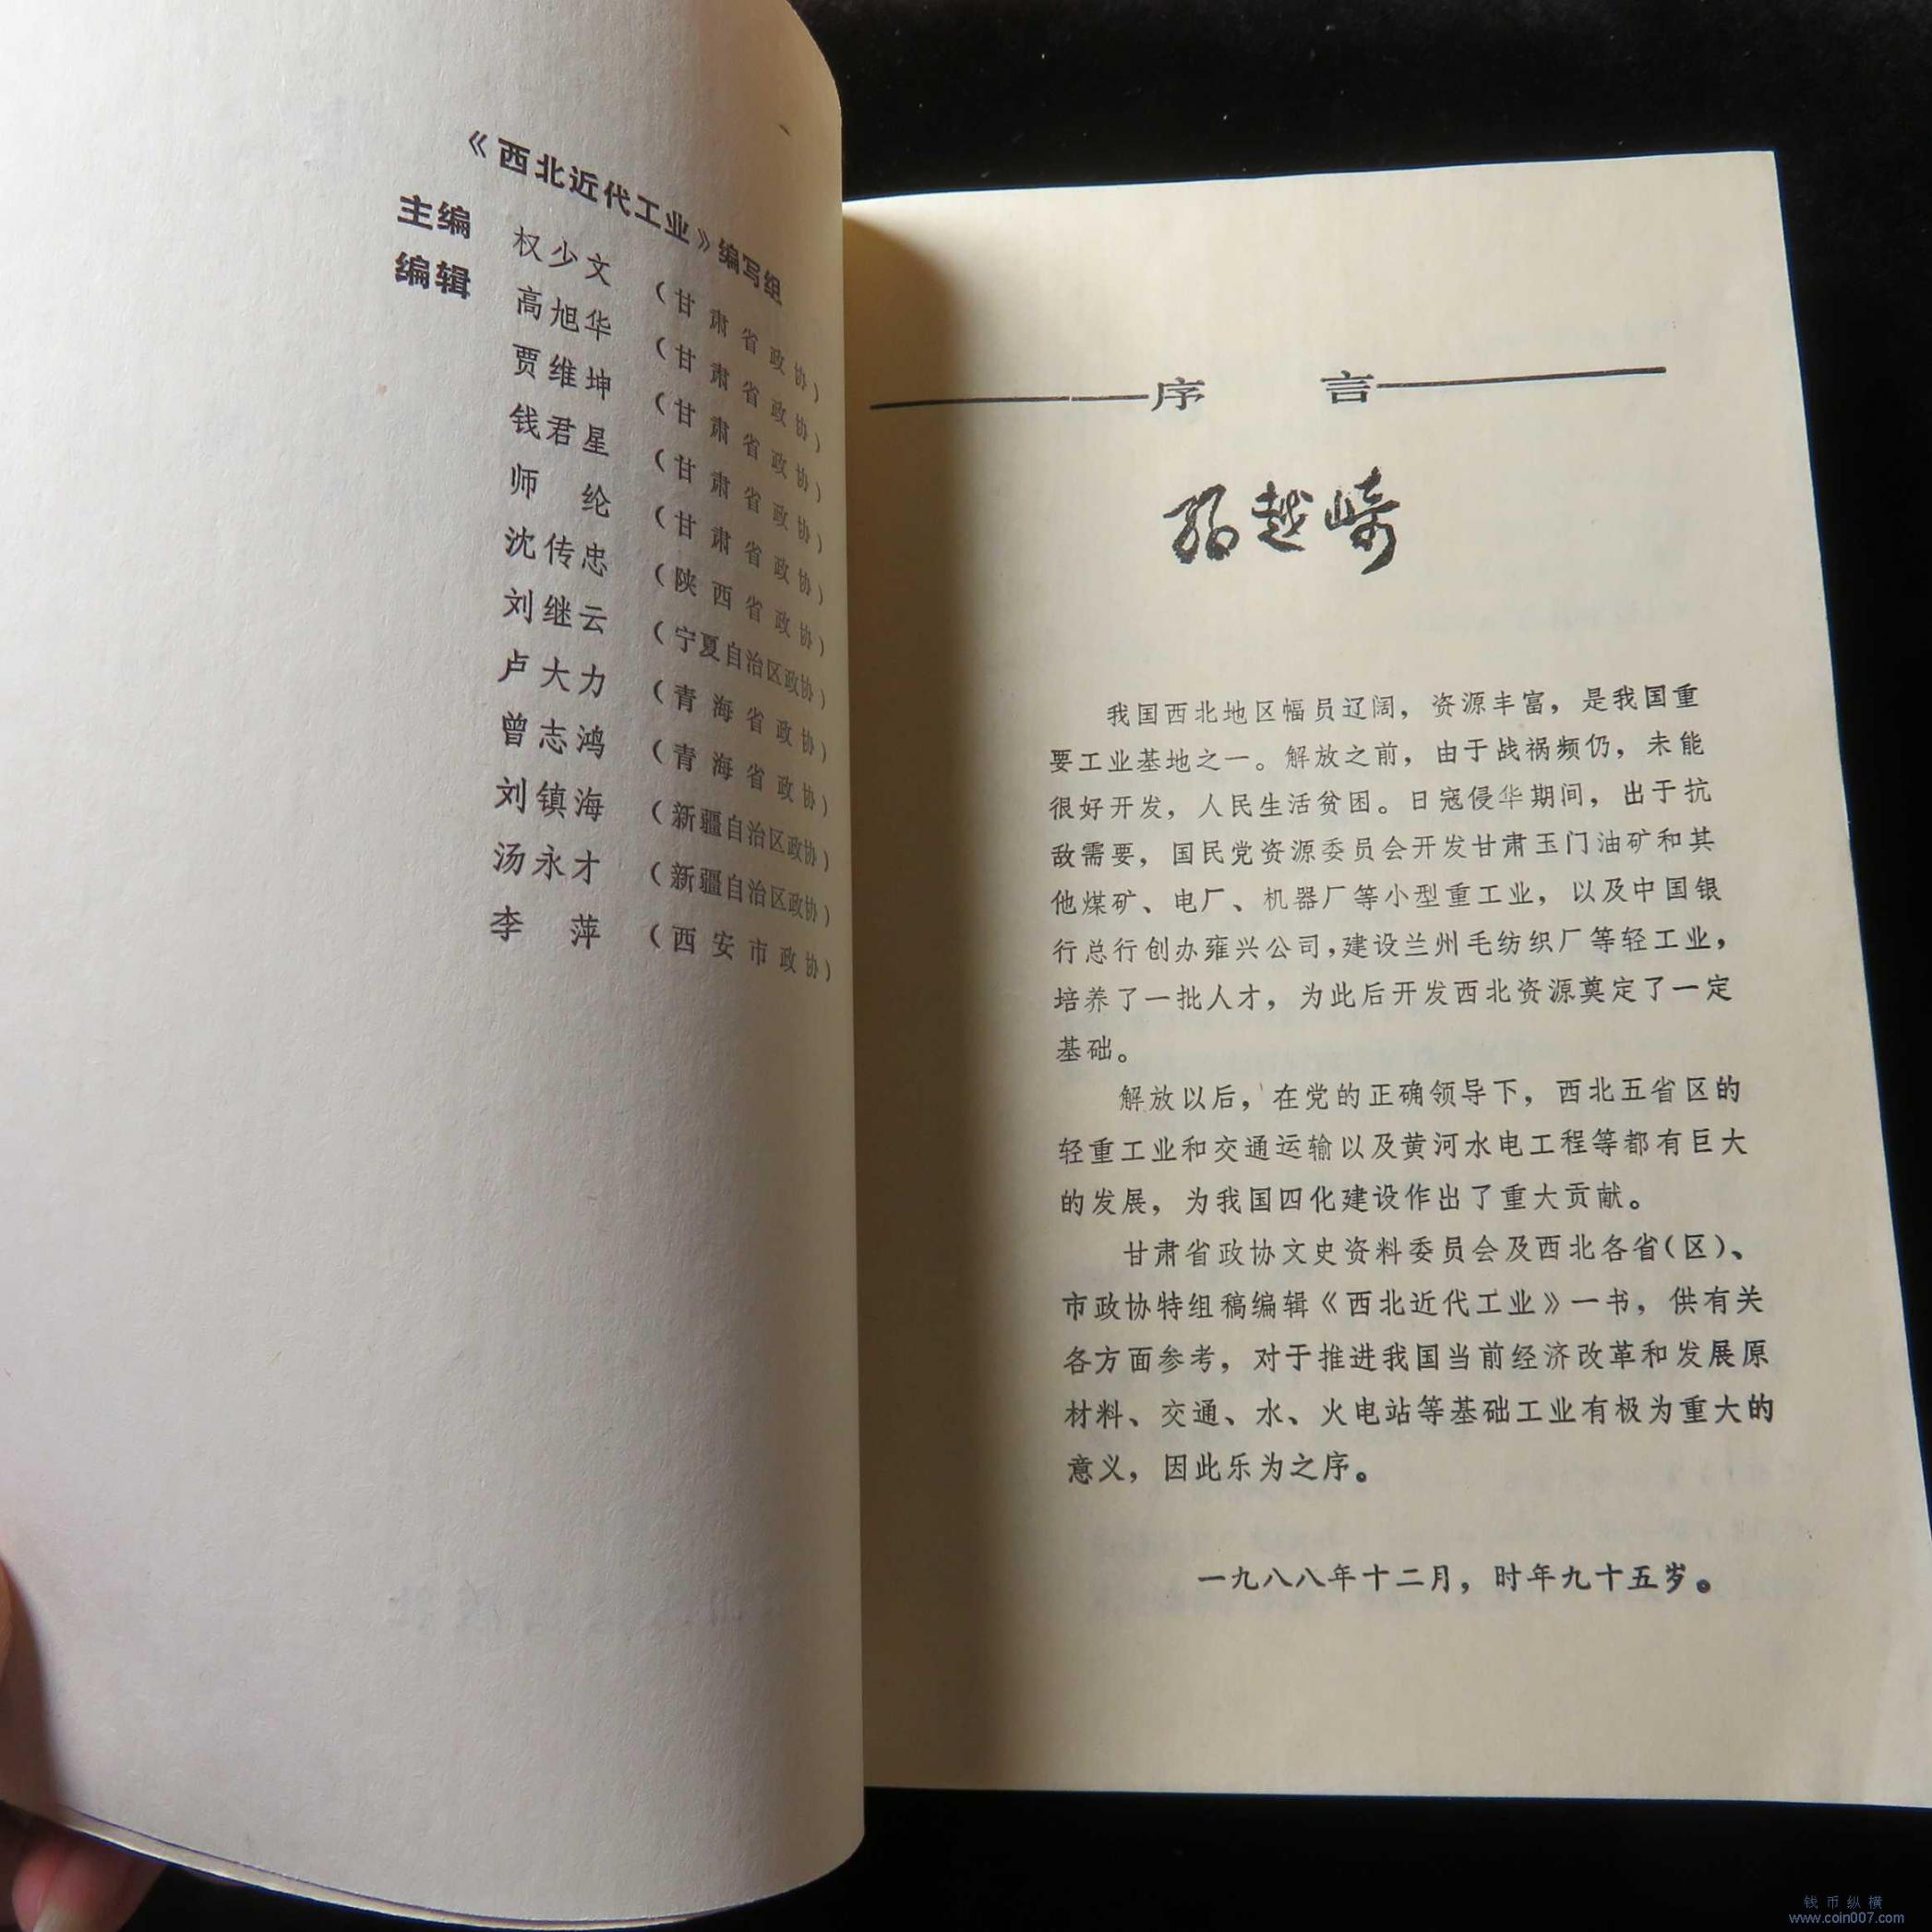 《西北近代工业》编写组
主编 权少文 (甘肃省政协)
编辑 高旭华 (甘肃省政协)
贾维坤 (甘肃省政协)
钱君星 (甘肃省政协)
师 纶 (甘肃省政协)
沈传忠 (陕西省政协)
刘继云 (宁夏自治区政协)
卢大力 (青海省政协)
曾志鸿 (青海省政协)
刘镇海 (新疆自治区政协)
汤永才 (新疆自治区政协)
李 萍 (西安市政协)
序 言
孙越崎
我国西北地区幅员辽阔，资源丰富，是我国重
要工业基地之一。解放之前，由于战祸频仍，未能
很好开发，人民生活贫困。日寇侵华期间，出于抗
敌需要，国民党资源委员会开发甘肃玉门油矿和其
他煤矿、电厂、机器厂等小型重工业，以及中国银
行总行创办雍兴公司，建设兰州毛纺织厂等轻工业，
培养了一批人才，为此后开发西北资源奠定了一定
基础。
解放以后，在党的正确领导下，西北五省区的
轻重工业和交通运输以及黄河水电工程等都有巨大
的发展，为我国四化建设作出了重大贡献。
甘肃省政协文史资料委员会及西北各省(区)、
市政协特组稿编辑《西北近代工业》一书，供有关
各方面参考，对于推进我国当前经济改革和发展原
材料、交通、水、火电站等基础工业有极为重大的
意义，因此乐为之序。
一九八八年十二月，时年九十五岁。
钱币纵横
www.coin007.com